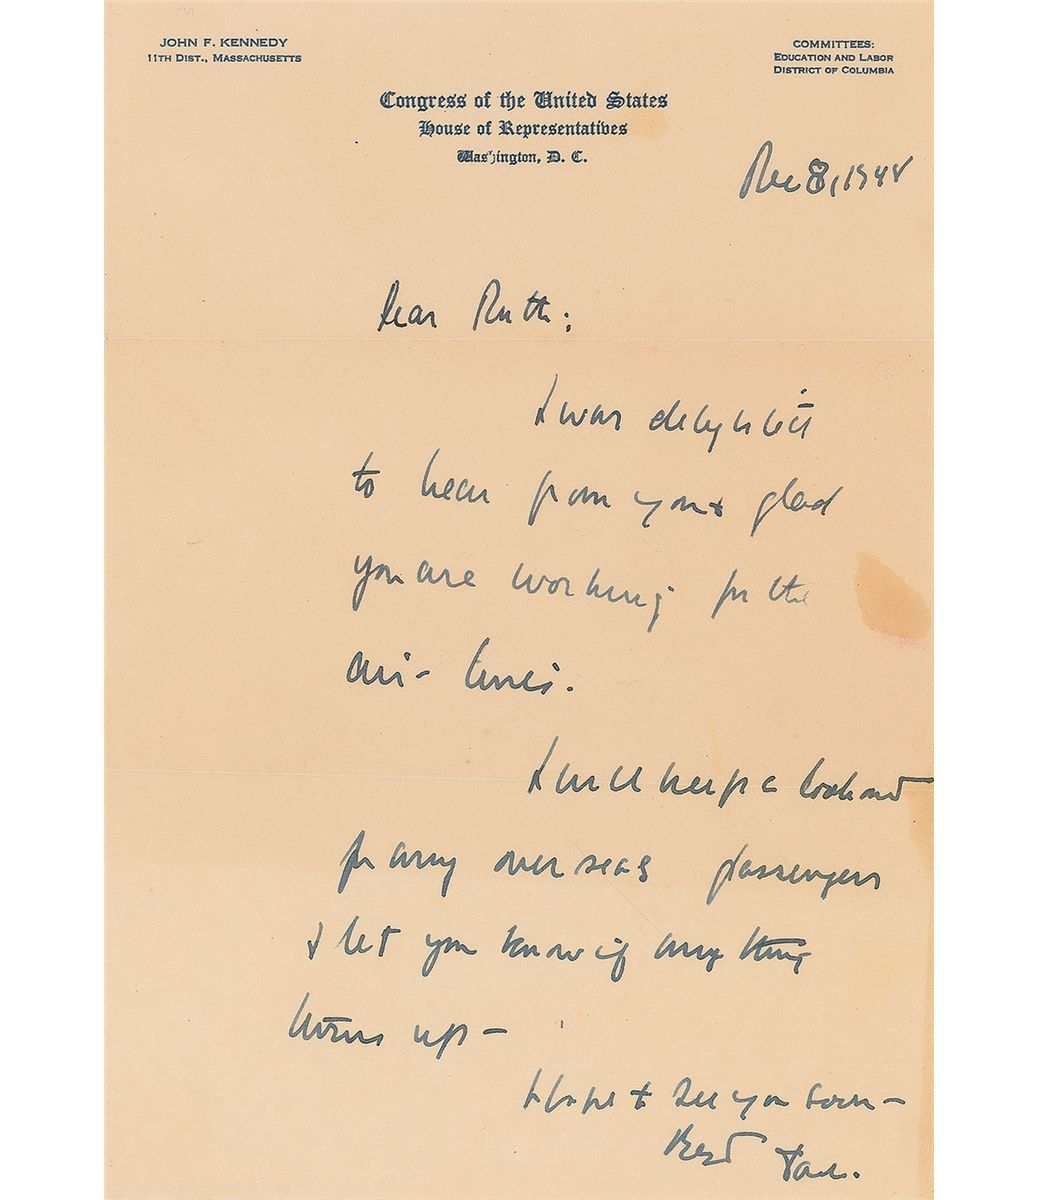 JOHN F. KENNEDY
11TH DIST., MASSACHUSETTS
COMMITTEES:
EDUCATION AND LABOR
DISTRICT OF COLUMBIA
Congress of the United States
House of Representatives
Washington, D. C.
Dec 8, 1948
Dear Ruth:
I was delighted
to hear from you + glad
you are working for the
air-lines.
I will keep a lookout
for any overseas passengers
+ let you know if anything
turns up -
Hope to see you soon -
Best Jack.